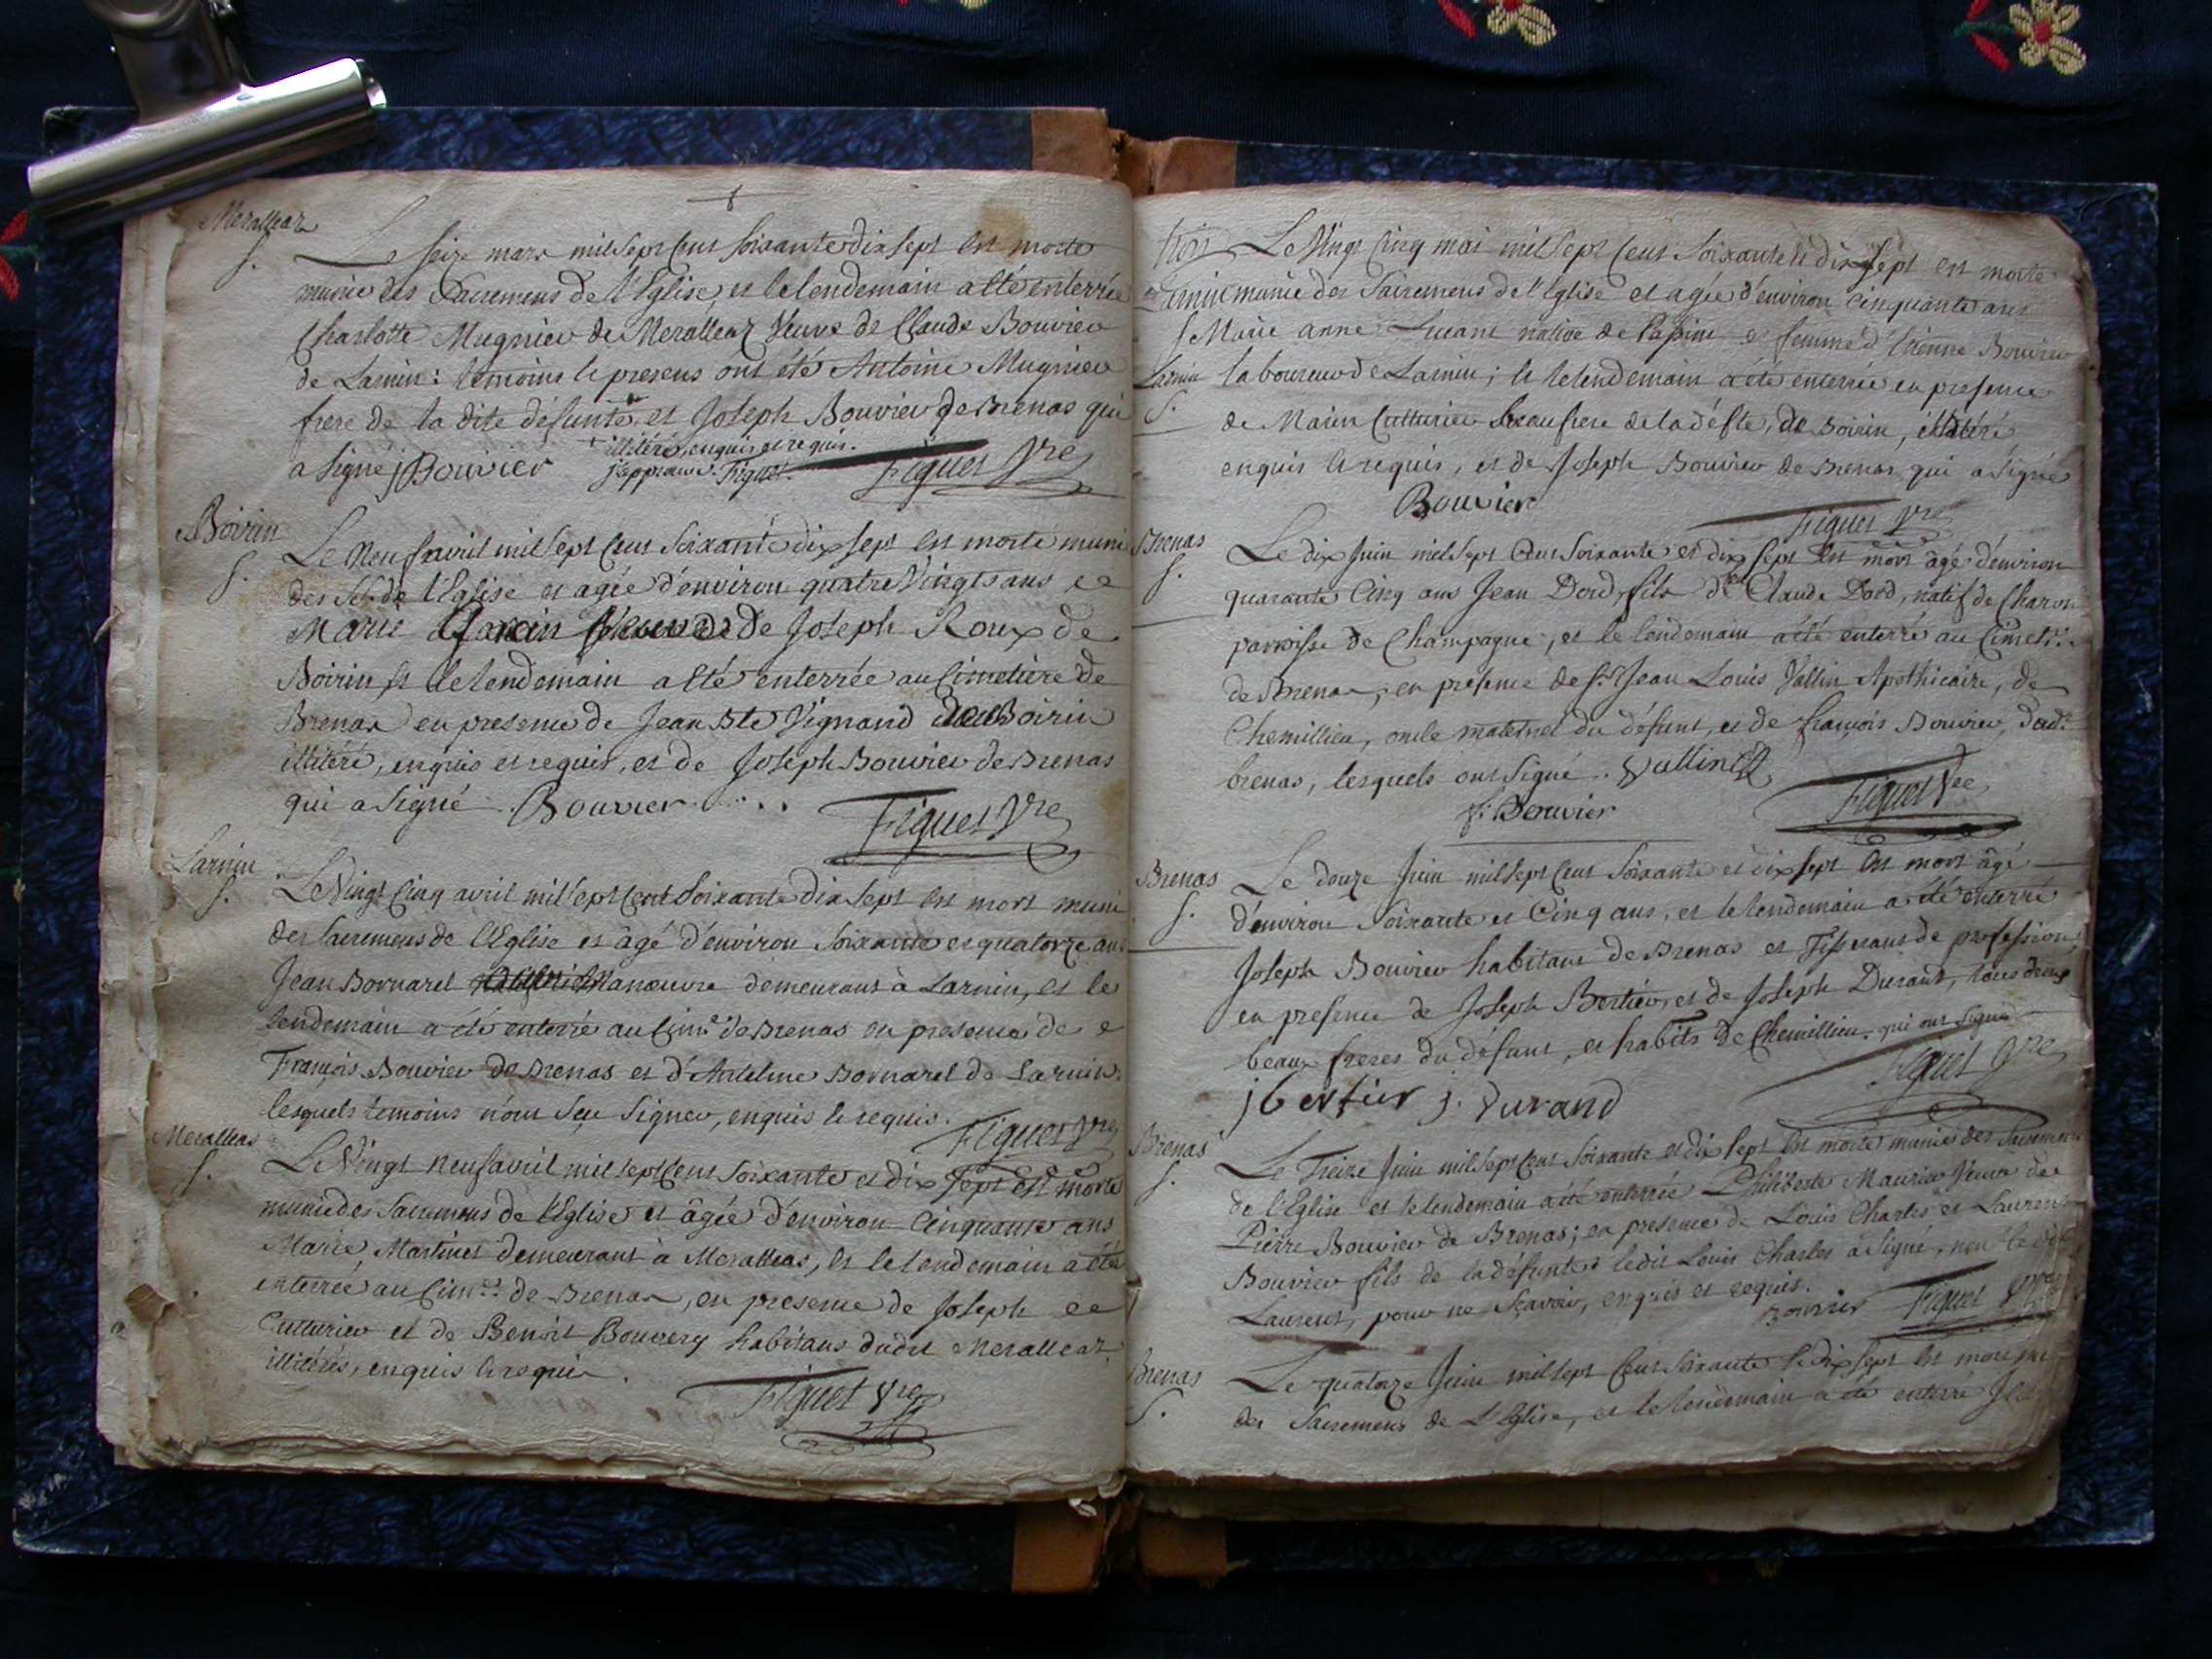 Meralleaz
S.
Le seize mars mil sept cent soixante dix sept est morte
munie des Sacremens de l'Eglise, et le lendemain a été enterrée
Charlotte Mugnier de Meralleaz Veuve de Claude Bouvier
de Larnin : temoins le presens ont été Antoine Mugnier
frere de la dite défunte + et Joseph Bouvier de Brenas qui
a Signé j Bouvier
+ illitéré, enquis et requis.
j'approuve. Fiquet.
Fiquet Vre
Boirin
S.
Le Neuf avril mil sept cent soixante dix sept est morte muni
des Scs de l'Eglise et agée d'environ quatre Vingts ans
Marie Veuve de Joseph Roux de
Boirin et le lendemain a été enterrée au Cimetière de
Brenas en presence de Jean Bte Vignand de Boirin
illitéré, enquis et requis, et de Joseph Bouvier de Brenas
qui a Signé . Bouvier . . . .
Fiquet Vre
Larnin
S.
Le Vingt Cinq avril mil sept cent soixante dix sept est mort muni
des Sacremens de l'Eglise et âgé d'environ soixante et quatorze ans
Jean Bornarel Manœuvre demeurant à Larnin, et le
lendemain a été enterré au Cimre de Brenas en presence de
François Bouvier de Brenas et d'Antelme Bornarel de Larnin.
lesquels temoins n'ont Seu Signer, enquis le requis.
Fiquet Vre
Meralleas
S.
Le Vingt neuf avril mil sept cent soixante et dix sept est morte
munie des Sacremens de l'Eglise et âgée d'environ Cinquante ans
Marie Martinet demeurant à Meralleas, et le lendemain a été
enterrée au Cimre de Brenas, en presence de Joseph
Cutturier et de Benoit Bouvery habitans dudit Meralleaz
illitérés, enquis le requis.
Fiquet Vre
trois Le Vingt Cinq mai mil sept cent soixante et dix sept est morte
munie des Sacremens de l'Eglise et agée d'environ Cinquante ans
Marie anne native de et femme d'Etienne Bouvier
Larnin
S.
laboureur de Larnin ; le lendemain a été enterrée en presence
de Marin Cutturier beaufrere de la défte, de Boirin, illitéré
enquis le requis, et de Joseph Bouvier de Brenas qui a Signé
Bouvier
Fiquet Vre
Brenas
S.
Le dix Juin mil sept cent soixante et dix sept est mort âgé d'environ
quarante Cinq ans Jean Dord, fils de feu Claude Dord, natif de Charon
parroisse de Champagne, et le lendemain a été enterré au Cimetre
de Brenas, en presence de Sr Jean Louis Vallin Apothicaire, de
Chemillieu, oncle maternel du défunt, et de françois Bouvier, dudt
brenas, lesquels ont Signé. Vallin
f. Bouvier
Fiquet Vre
Brenas
S.
Le douze Juin mil sept cent soixante et dix sept est mort âgé
d'environ Soixante et Cinq ans, et le lendemain a été enterré
Joseph Bouvier habitant de Brenas et Tisserant de profession,
en presence de Joseph Bertier, et de Joseph Durant, tous deux
beaux freres du défunt, et habits de Chemillieu. qui ont signé
Fiquet Vre
j bertier j. Durand
Brenas
S.
Le Treize Juin mil sept cent soixante et dix sept est morte munie des Sacremens
de l'Eglise et le lendemain a été enterrée Philiberte Maurier Veuve de
Pierre Bouvier de Brenas ; en presence de Louis Charles et Laurent
Bouvier fils de la défunte : ledit Louis Charles a Signé, non ledit
Laurent, pour ne Sçavoir, enquis et requis.
Bouvier Fiquet Vre
Brenas
S.
Le quatorze Juin mil sept cent soixante et dix sept est mort
des Sacremens de L'Eglise, et le lendemain a été enterré